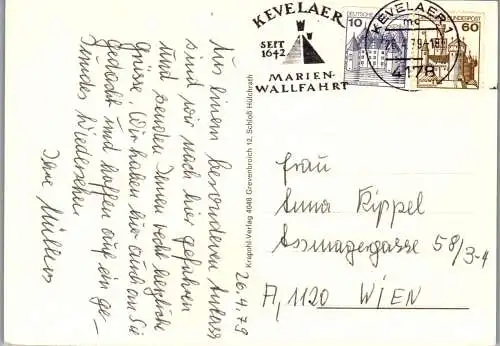 KEVELAER
SEIT
1642
MARIEN-
WALLFAHRT
DEUTSCHE BUNDESPOST
10
60
KEVELAER 1
mc
79-18
4178
26.4.79
Aus einem besonderen Anlass
sind wir nach hier gefahren
und senden Ihnen recht herzliche
Grüsse. Wir haben hier auch an Sie
gedacht und hoffen auf ein ge-
sundes Wiedersehen
Ihre Müllers
Krapohl-Verlag 4048 Grevenbroich 12, Schloß Hülchrath
Frau
Anna Rippel
Assmayergasse 58/3-4
A, 1120 WIEN